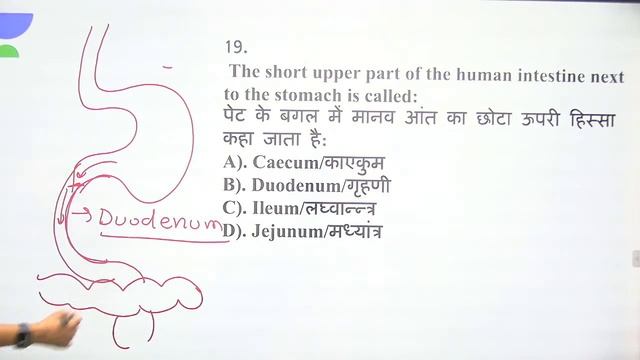 19.
The short upper part of the human intestine next
to the stomach is called:
पेट के बगल में मानव आंत का छोटा ऊपरी हिस्सा
कहा जाता है:
A). Caecum/काएकुम
B). Duodenum/गृहणी
C). Ileum/लघ्वान्न्त्र
D). Jejunum/मध्यांत्र
Duodenum